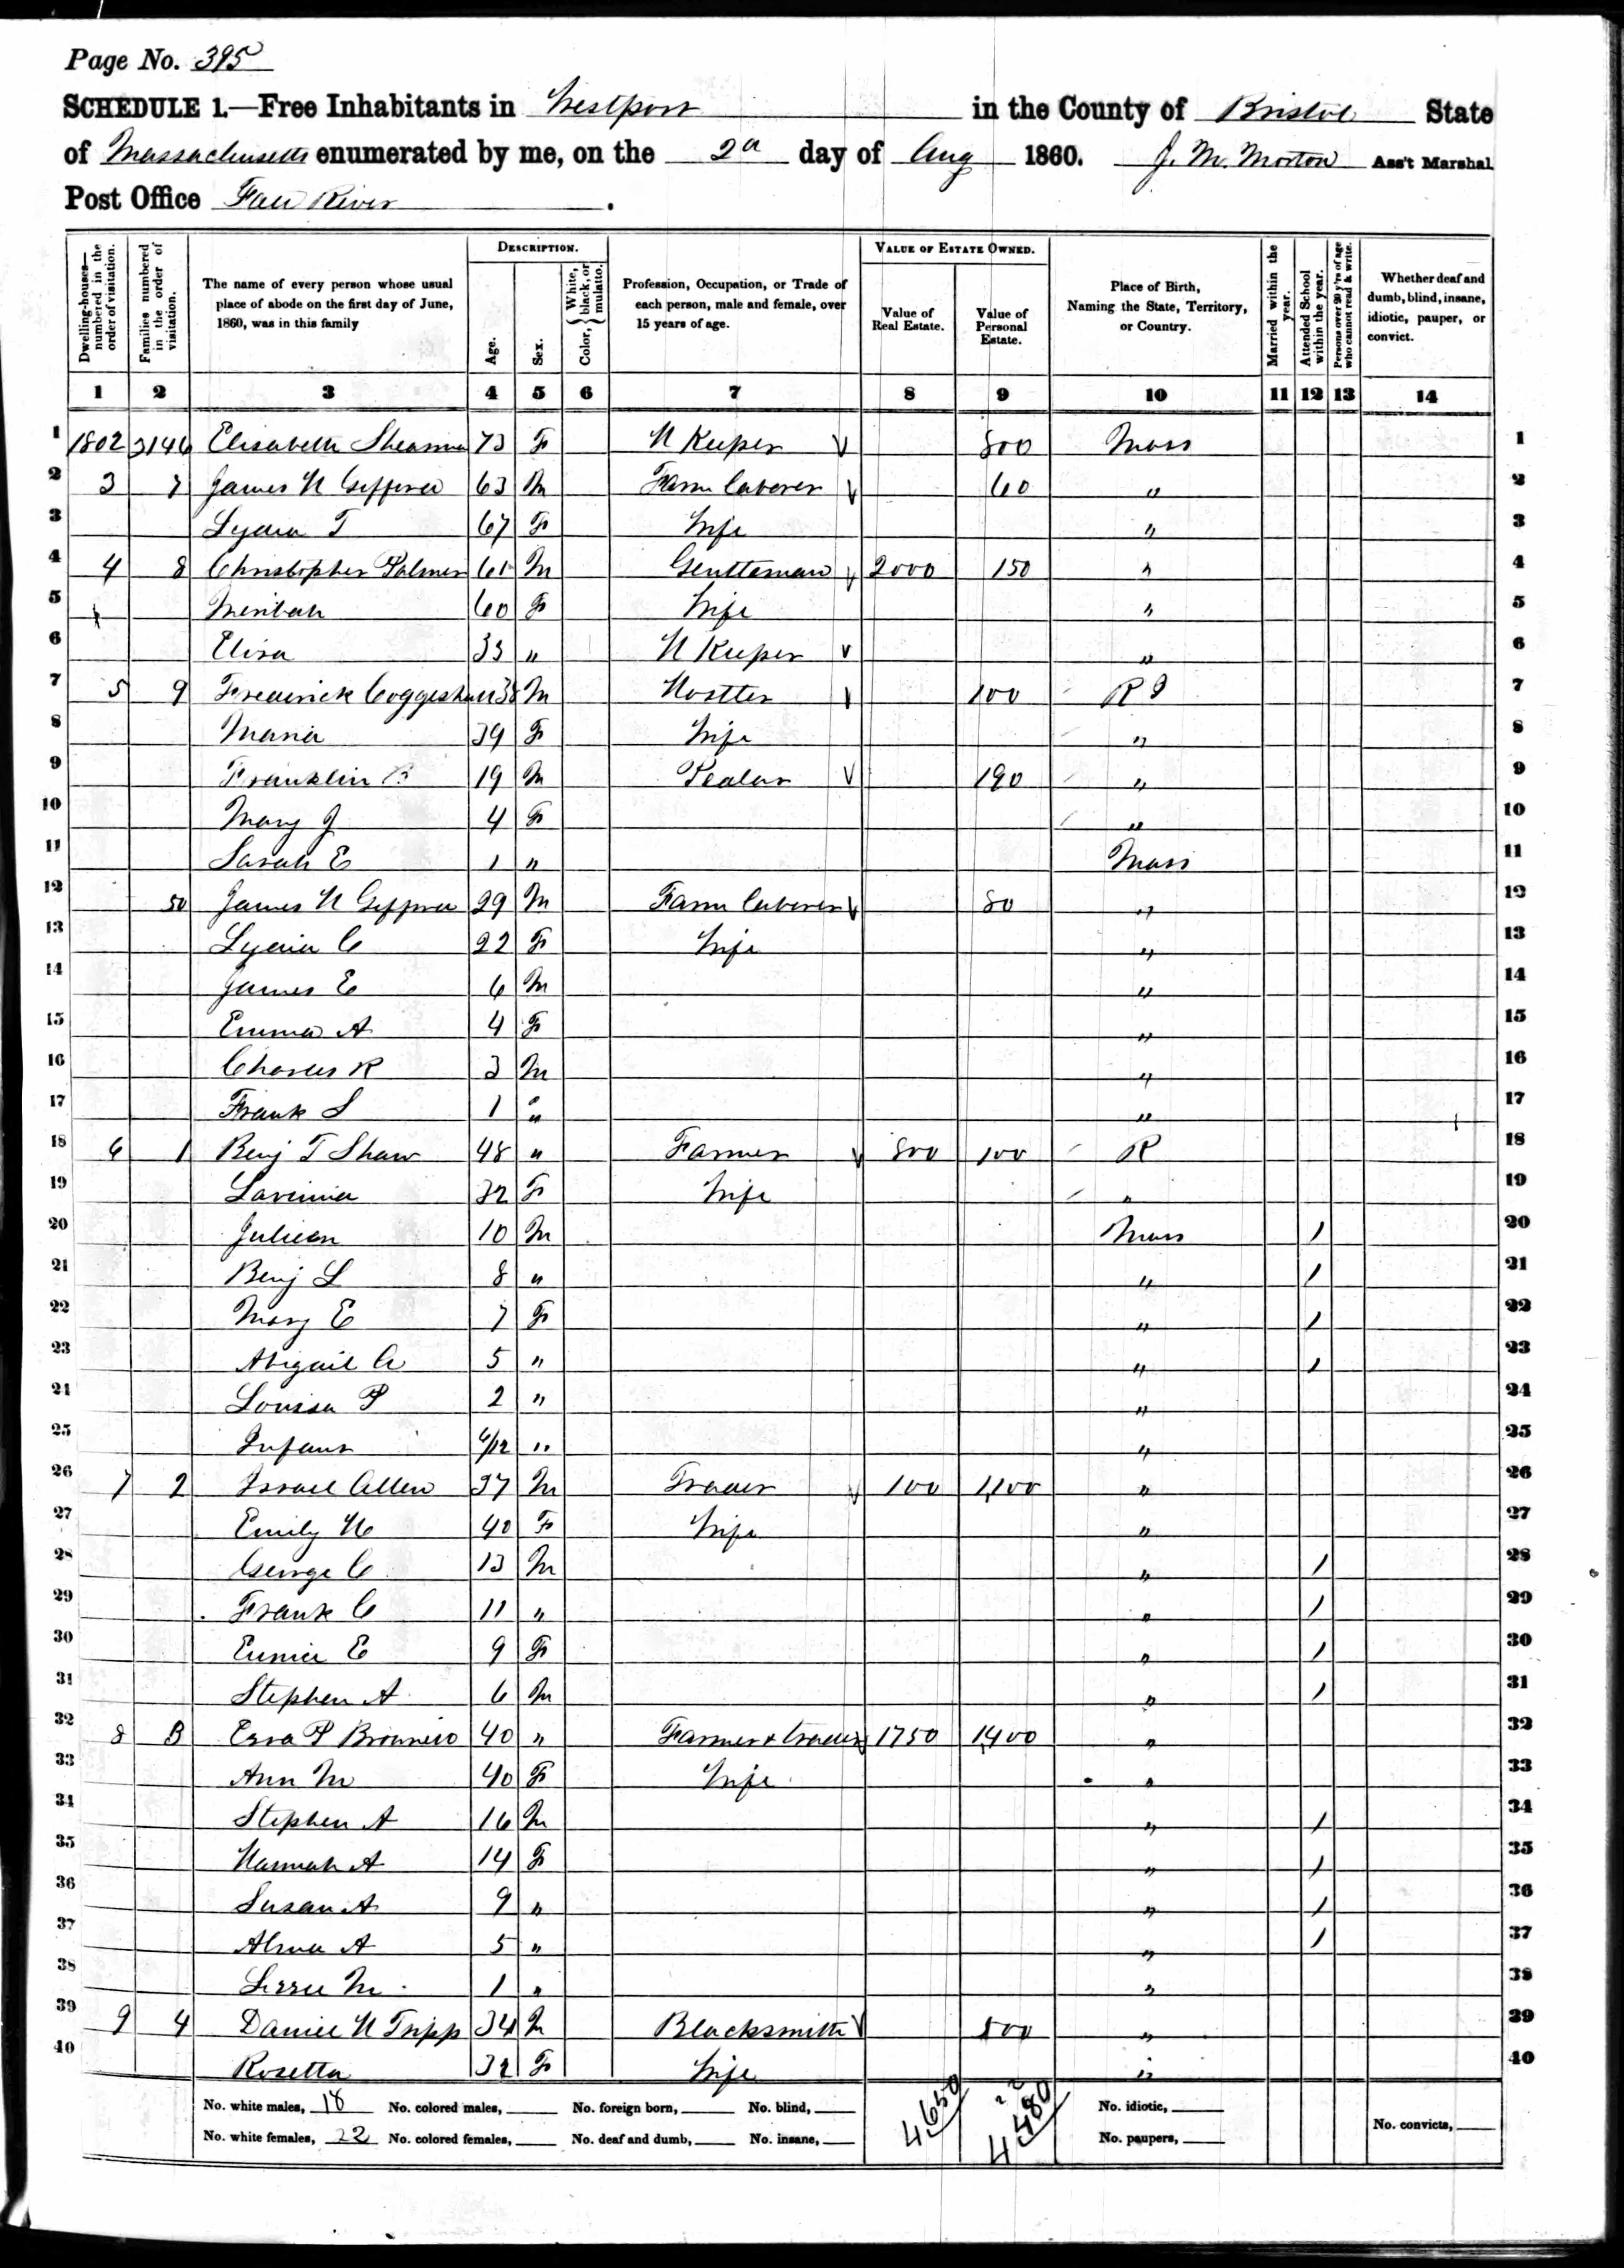 Page No. 395
SCHEDULE 1.—Free Inhabitants in Westport in the County of Bristol State
of Massachusetts enumerated by me, on the 2d day of Aug 1860. J. M. Morton Ass't Marshal
Post Office Fall River.
Dwelling-houses—numbered in the order of visitation.
Families numbered in the order of visitation.
The name of every person whose usual place of abode on the first day of June, 1860, was in this family
DESCRIPTION.
Age.
Sex.
Color, { White, black, or mulatto.
Profession, Occupation, or Trade of each person, male and female, over 15 years of age.
VALUE OF ESTATE OWNED.
Value of Real Estate.
Value of Personal Estate.
Place of Birth, Naming the State, Territory, or Country.
Married within the year.
Attended School within the year.
Persons over 20 y'rs of age who cannot read & write.
Whether deaf and dumb, blind, insane, idiotic, pauper, or convict.
1 2 3 4 5 6 7 8 9 10 11 12 13 14
1 1802 2146 Elisabeth 73 F H Keeper 800 Mass 1
2 3 7 James H 63 M Farm laborer 60 " 2
3 Lydia T 67 F Wife " 3
4 4 8 Christopher Palmer 61 M Gentleman 2000 150 " 4
5 Meribah 60 F Wife " 5
6 Eliza 33 " H Keeper " 6
7 5 9 Frederick Coggeshall 38 M Hostler 100 R I 7
8 Maria 39 F Wife " 8
9 Franklin B 19 M 190 " 9
10 Mary J 4 F " 10
11 Sarah E 1 " Mass 11
12 50 James H 29 M Farm laborer 80 " 12
13 Lydia C 22 F Wife " 13
14 James E 6 M " 14
15 Emma A 4 F " 15
16 Charles R 3 M " 16
17 Frank S 1 " " 17
18 6 1 Benj T Shaw 48 " Farmer 800 100 R 18
19 Lavinia 32 F Wife " 19
20 Julian 10 M Mass / 20
21 Benj L 8 " " / 21
22 Mary E 7 F " / 22
23 Abigail A 5 " " / 23
24 Louisa P 2 " " 24
25 Infant 6/12 " " 25
26 7 2 Israel Allen 37 M Trader 100 1,100 " 26
27 Emily H 40 F Wife " 27
28 George C 13 M " / 28
29 Frank C 11 " " / 29
30 Eunice E 9 F " / 30
31 Stephen A 6 M " / 31
32 8 3 Ezra P Brownell 40 " Farmer & trader 1750 1400 " 32
33 Ann M 40 F Wife " 33
34 Stephen A 16 M " / 34
35 Hannah A 14 F " / 35
36 Susan A 9 " " / 36
37 Alma A 5 " " / 37
38 Lizzie M 1 " " 38
39 9 4 Daniel H Tripp 34 M Blacksmith 500 " 39
40 Rosetta 32 F Wife " 40
No. white males, 18 No. colored males, No. foreign born, No. blind, 4650 4480 No. idiotic,
No. white females, 22 No. colored females, No. deaf and dumb, No. insane, No. paupers, No. convicts,